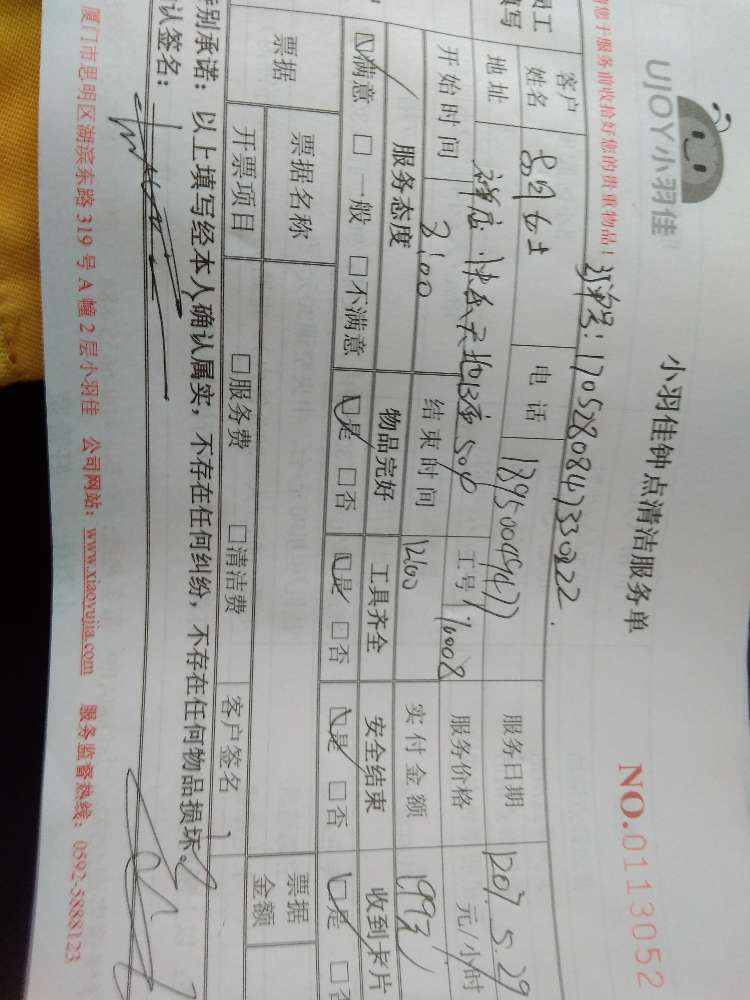 UJOY小羽佳
小羽佳钟点清洁服务单
NO.0113052
您于服务前收拾好您的贵重物品！
单号：170528084733022
客户姓名 女士 电话 服务日期 5.29
地址 祥店 快乐天地 工号 服务价格 元/小时
开始时间 结束时间 12:00 实付金额 199元
服务态度 物品完好 工具齐全 安全结束 收到卡片
☑满意 □一般 □不满意 ☑是 □否 ☑是 □否 ☑是 □否 ☑是 □否
票据 票据名称 □服务费 □清洁费 票据金额
开票项目 客户签名
特别承诺：以上填写经本人确认属实，不存在任何纠纷，不存在任何物品损坏。
认签名：
厦门市思明区湖滨东路 319 号 A 幢 2 层小羽佳 公司网站：www.xiaoyujia.com 服务监督热线：0592-5888123